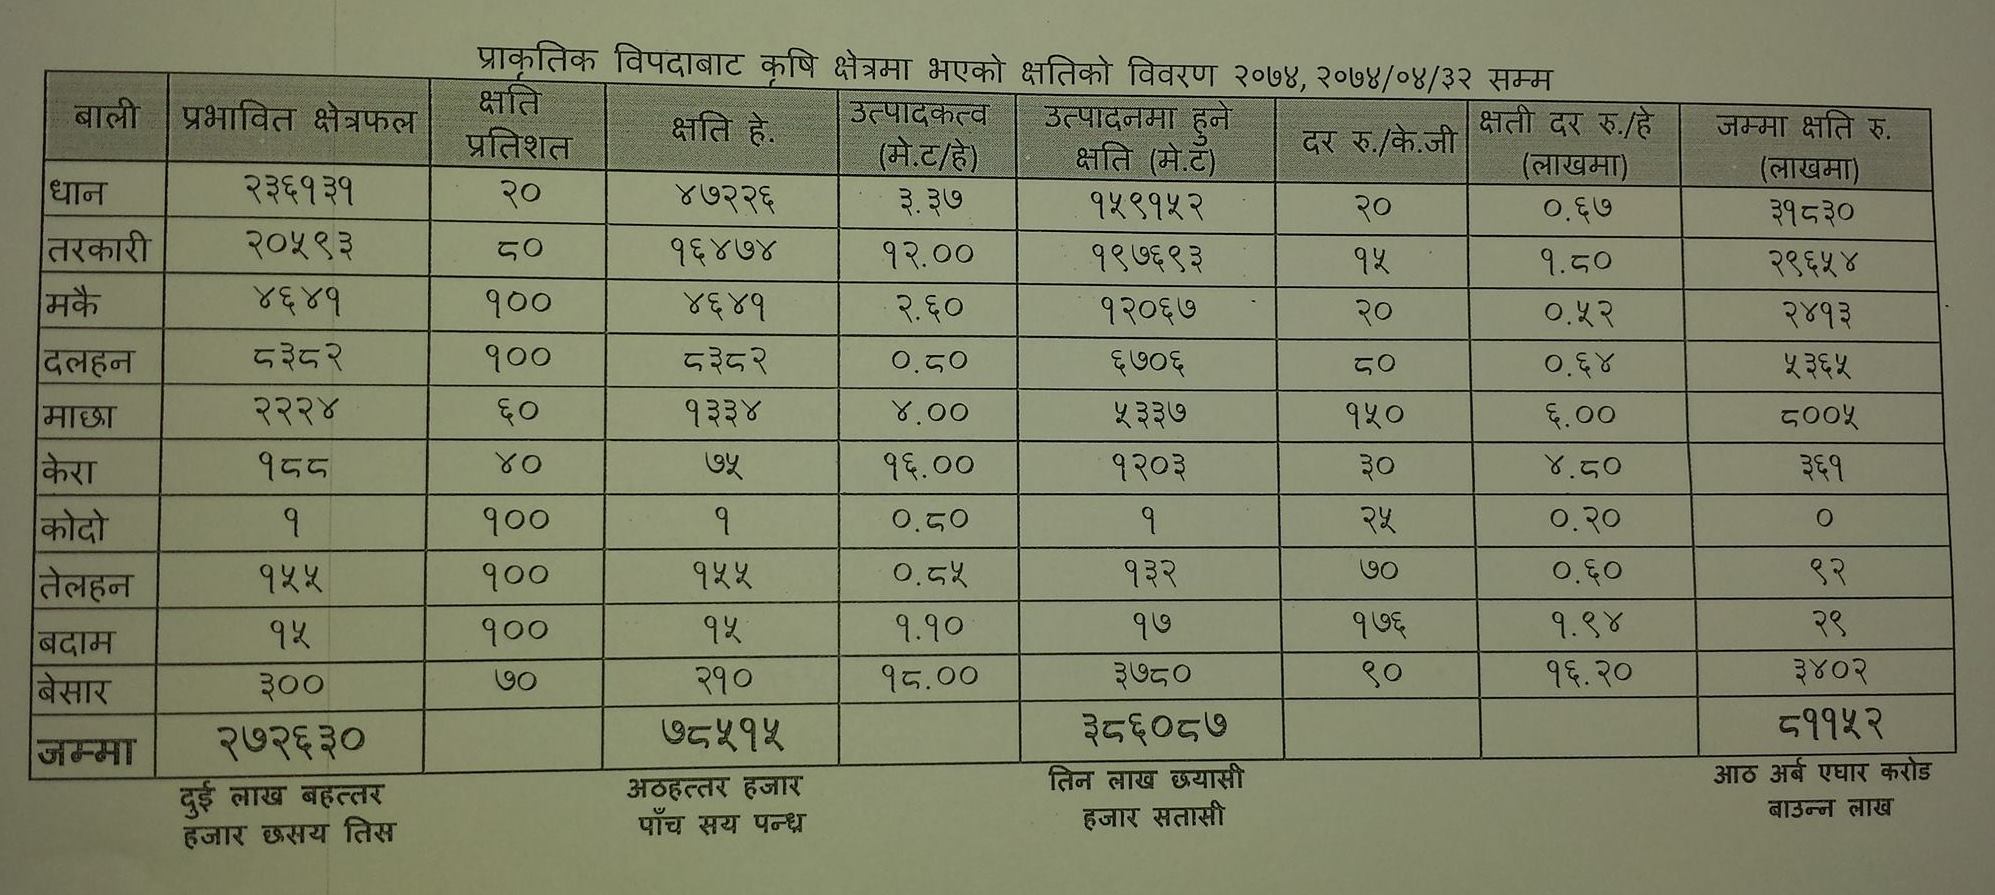 प्राकृतिक विपदाबाट कृषि क्षेत्रमा भएको क्षतिको विवरण २०७४, २०७४/०४/३२ सम्म
बाली प्रभावित क्षेत्रफल क्षति प्रतिशत क्षति हे. उत्पादकत्व (मे.ट/हे) उत्पादनमा हुने क्षति (मे.ट) दर रु./के.जी क्षती दर रु./हे (लाखमा) जम्मा क्षति रु. (लाखमा)
धान २३६१३१ २० ४७२२६ ३.३७ १५९१५२ २० ०.६७ ३१८३०
तरकारी २०५९३ ८० १६४७४ १२.०० १९७६९३ १५ १.८० २९६५४
मकै ४६४१ १०० ४६४१ २.६० १२०६७ २० ०.५२ २४१३
दलहन ८३८२ १०० ८३८२ ०.८० ६७०६ ८० ०.६४ ५३६५
माछा २२२४ ६० १३३४ ४.०० ५३३७ १५० ६.०० ८००५
केरा १८८ ४० ७५ १६.०० १२०३ ३० ४.८० ३६१
कोदो १ १०० १ ०.८० १ २५ ०.२० ०
तेलहन १५५ १०० १५५ ०.८५ १३२ ७० ०.६० ९२
बदाम १५ १०० १५ १.१० १७ १७६ १.९४ २९
बेसार ३०० ७० २१० १८.०० ३७८० ९० १६.२० ३४०२
जम्मा २७२६३० ७८५१५ ३८६०८७ ८११५२
दुई लाख बहत्तर हजार छसय तिस
अठहत्तर हजार पाँच सय पन्ध्र
तिन लाख छयासी हजार सतासी
आठ अर्ब एघार करोड बाउन्न लाख